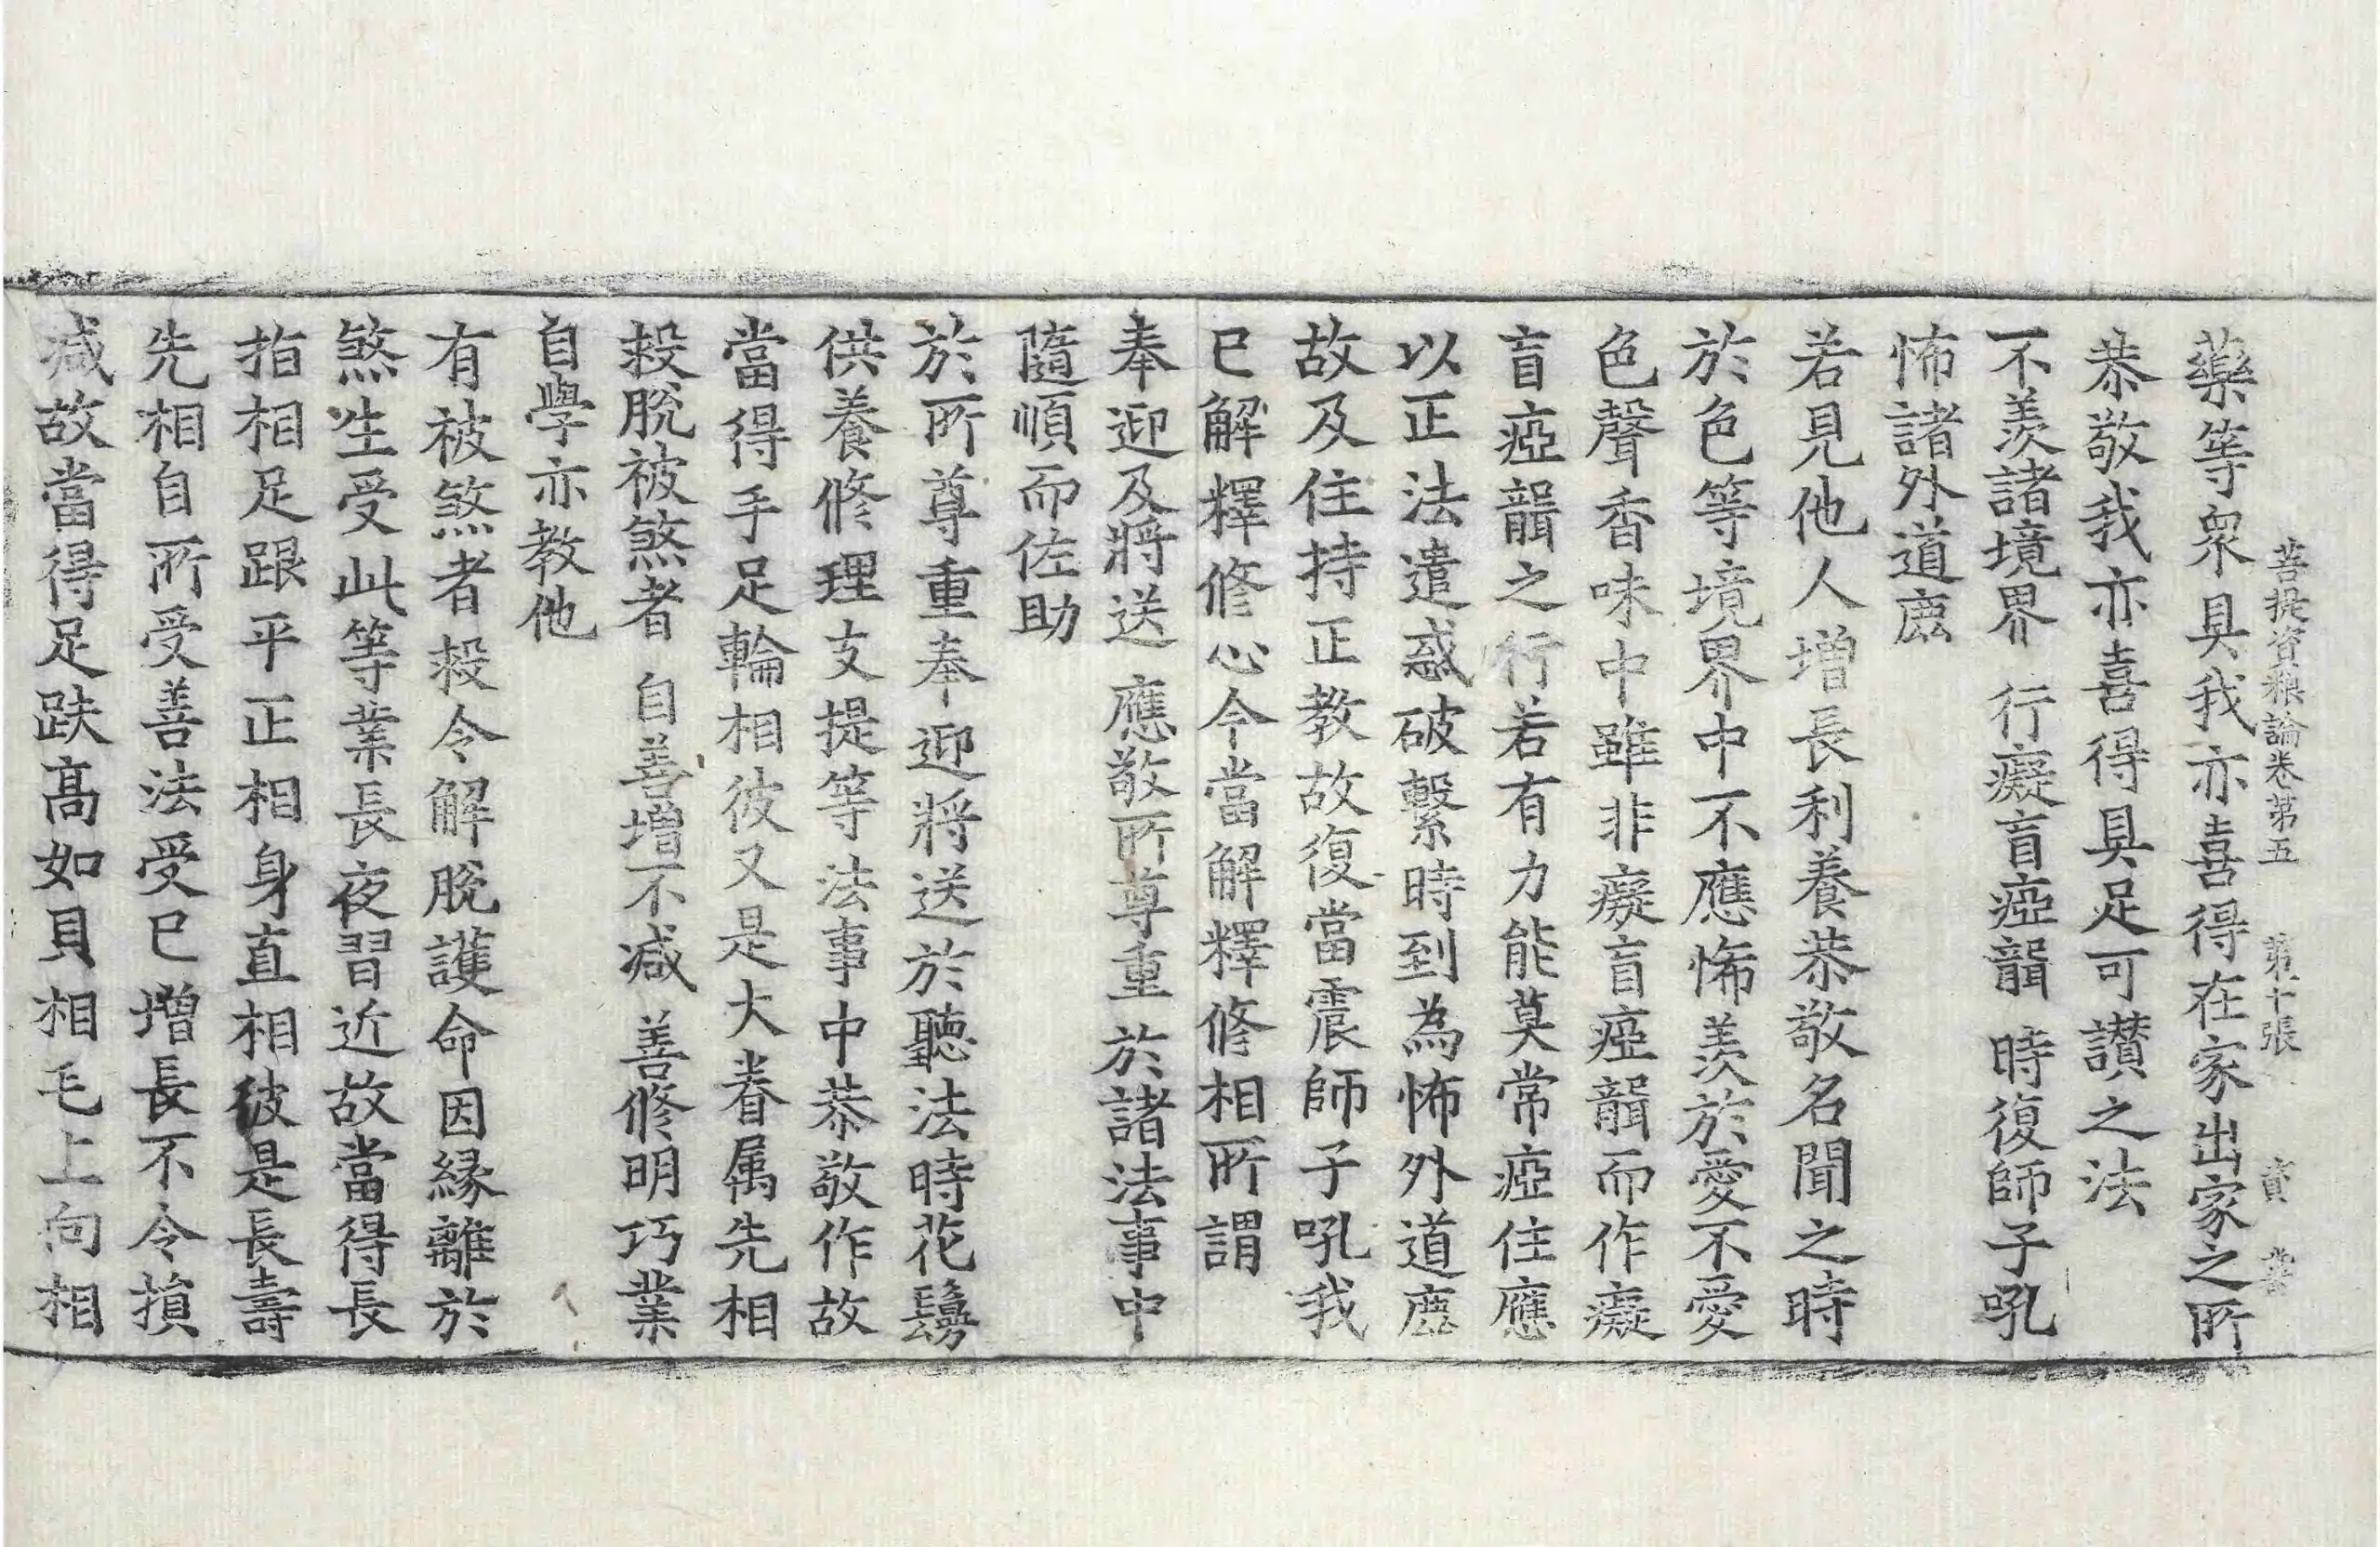 菩提資糧論卷第五　第十張　賓
藥等衆具我亦喜得在家出家之所
恭敬我亦喜得具足可讃之法
不羨諸境界　行癡盲瘂聾　時復師子吼
怖諸外道鹿
若見他人増長利養恭敬名聞之時
於色等境界中不應悕羨於愛不愛
色聲香味中雖非癡盲瘂聾而作癡
盲瘂聾之行若有力能莫常瘂住應
以正法遣惑破繫時到為怖外道鹿
故及住持正教故復當震師子吼我
已解釋修心今當解釋修相所謂
奉迎及將送　應敬所尊重　於諸法事中
隨順而佐助
於所尊重奉迎將送於聽法時花鬘
供養修理支提等法事中恭敬作故
當得手足輪相彼又是大眷属先相
㪅脫被煞者　自善増不減　善修明巧業
自學亦教他
有被煞者㪅令解脫護命因縁離於
煞生受此等業長夜習近故當得長
指相足跟平正相身直相彼是長壽
先相自所受善法受已増長不令損
減故當得足趺髙如貝相毛上向相